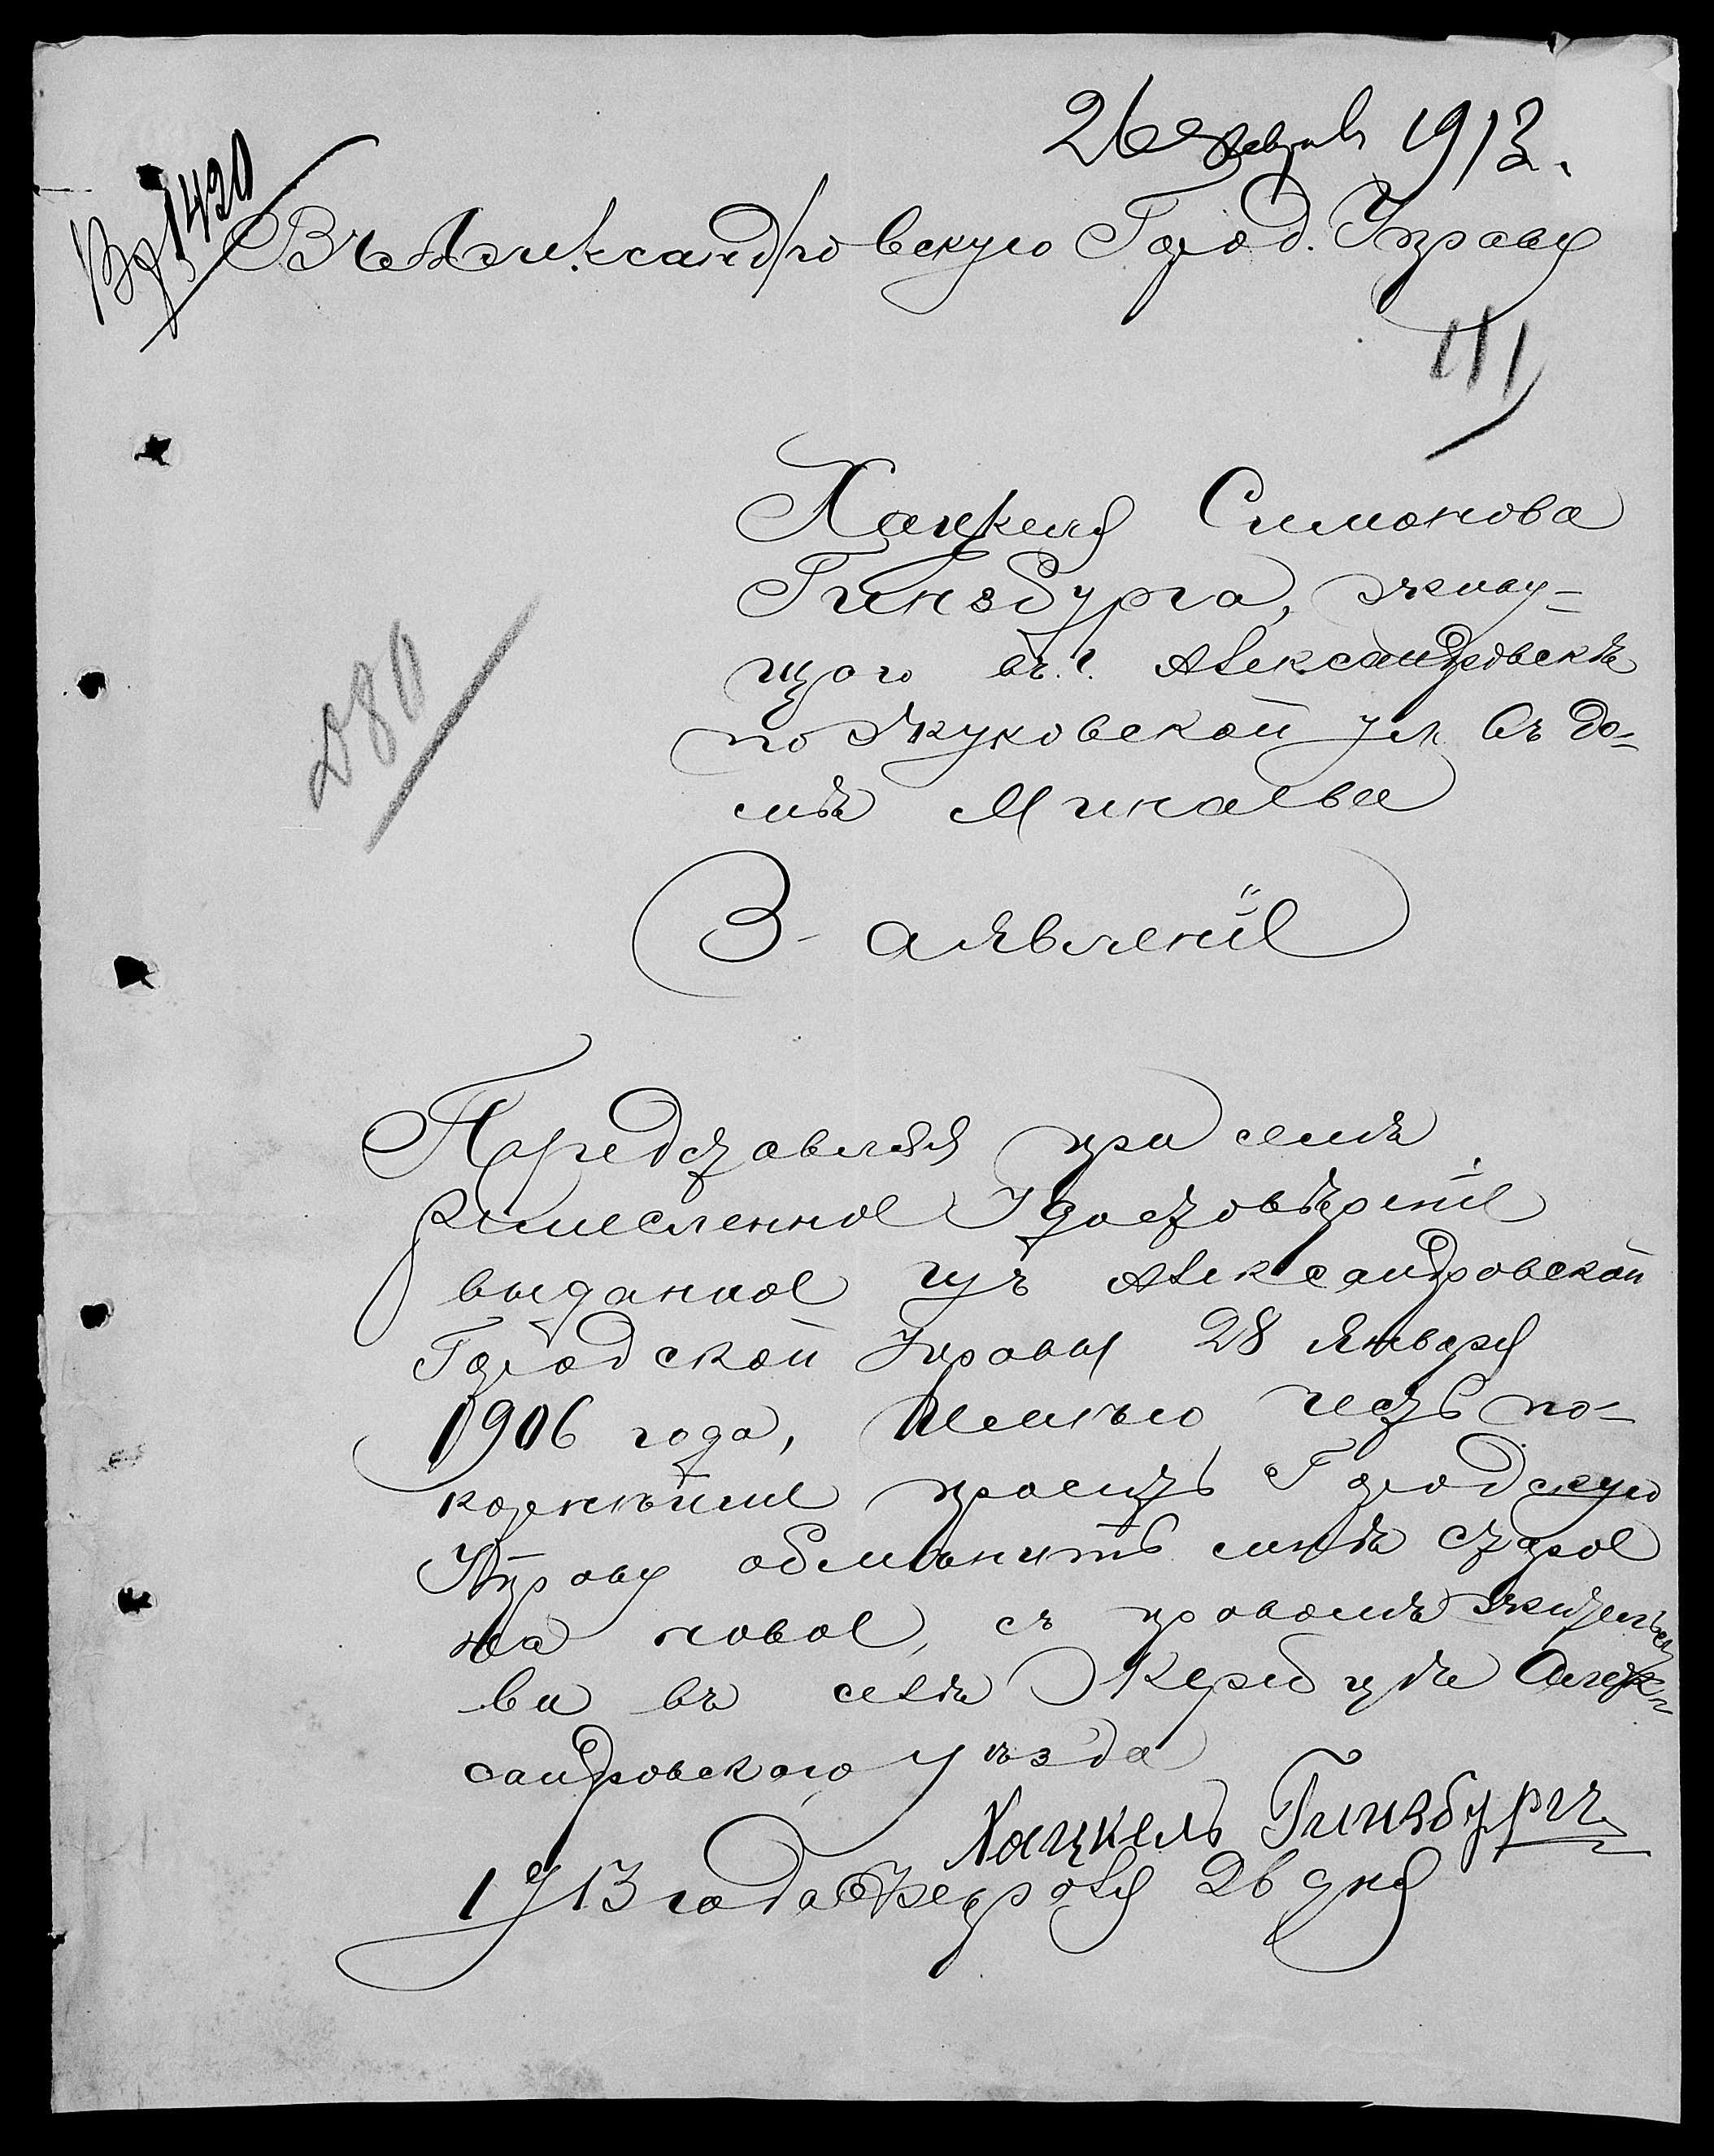 26 февраля 1913.
Вх 1420
Въ Александровскую Город. Управу
111
Хацкеля Симонова
Гинзбурга, живу-
щаго въ г. Александровскѣ
по Жуковской ул. въ до-
мѣ Минаева
280
З-аявленіе
Представляя при семъ
ремесленное Удостовѣреніе
выданное изъ Александровской
Городской Управы 28 Января
1906 года, имѣю честь по-
корнѣйше просить Городскую
Управу обмѣнить мнѣ старое
на новое, съ правомъ жительст
ва въ селѣ Алек-
сандровскаго уѣзда
Хацкель Гинзбургъ
1913 года Февраля 26 дня